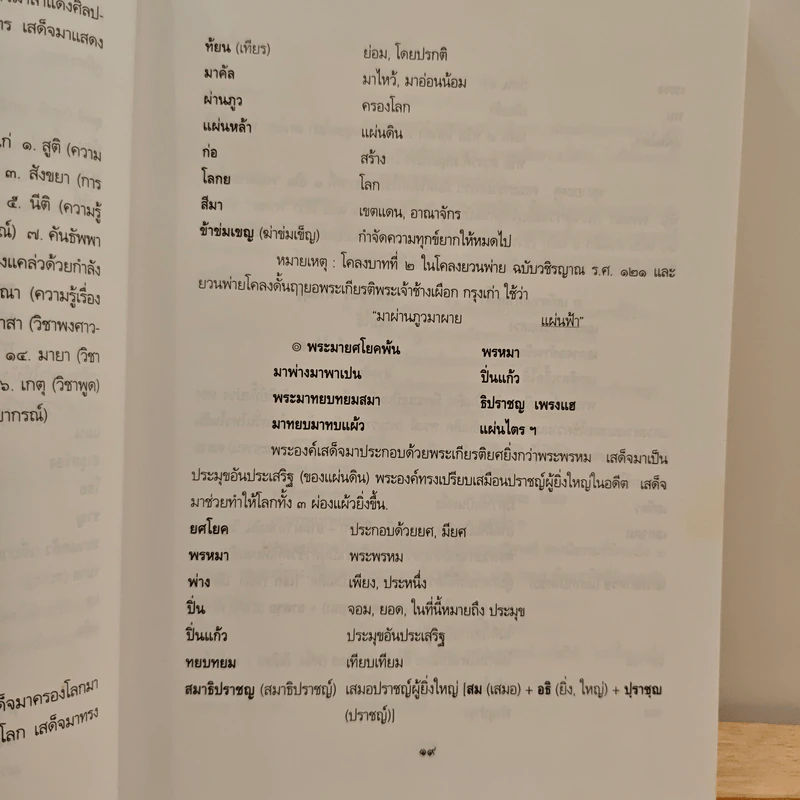 มาสำแดงศิลป-
าร เสด็จมาแสดง
ก่ ๑. สูติ (ความ
๓. สังขยา (การ
๕. นีติ (ความรู้
ณ์) ๗. คันธัพพา
งแคล่วด้วยกำลัง
ณา (ความรู้เรื่อง
าสา (วิชาพงศาว-
๑๔. มายา (วิชา
๖. เกตุ (วิชาพูด)
ยากรณ์)
ด็จมาครองโลกมา
โลก เสด็จมาทรง
ท้ยน (เทียร) ย่อม, โดยปรกติ
มาคัล มาไหว้, มาอ่อนน้อม
ผ่านภูว ครองโลก
แผ่นหล้า แผ่นดิน
ก่อ สร้าง
โลกย โลก
สีมา เขตแดน, อาณาจักร
ข้าข่มเขญ (ฆ่าข่มเข็ญ) กำจัดความทุกข์ยากให้หมดไป
หมายเหตุ : โคลงบาทที่ ๒ ในโคลงยวนพ่าย ฉบับวชิรญาณ ร.ศ. ๑๒๑ และ
ยวนพ่ายโคลงดั้นฤๅยอพระเกียรติพระเจ้าช้างเผือก กรุงเก่า ใช้ว่า
"มาผ่านภูวมาผาย แผ่นฟ้า"
๏ พระมายศโยคพ้น พรหมา
มาพ่างมาพาเปน ปิ่นแก้ว
พระมาทยบทยมสมา ธิปราชญ เพรงแฮ
มาทยบมาทบแผ้ว แผ่นไตร ฯ
พระองค์เสด็จมาประกอบด้วยพระเกียรติยศยิ่งกว่าพระพรหม เสด็จมาเป็น
ประมุขอันประเสริฐ (ของแผ่นดิน) พระองค์ทรงเปรียบเสมือนปราชญ์ผู้ยิ่งใหญ่ในอดีต เสด็จ
มาช่วยทำให้โลกทั้ง ๓ ผ่องแผ้วยิ่งขึ้น.
ยศโยค ประกอบด้วยยศ, มียศ
พรหมา พระพรหม
พ่าง เพียง, ประหนึ่ง
ปิ่น จอม, ยอด, ในที่นี้หมายถึง ประมุข
ปิ่นแก้ว ประมุขอันประเสริฐ
ทยบทยม เทียบเทียม
สมาธิปราชญ (สมาธิปราชญ์) เสมอปราชญ์ผู้ยิ่งใหญ่ [สม (เสมอ) + อธิ (ยิ่ง, ใหญ่) + ปฺราชฺญ
(ปราชญ์)]
๑๙